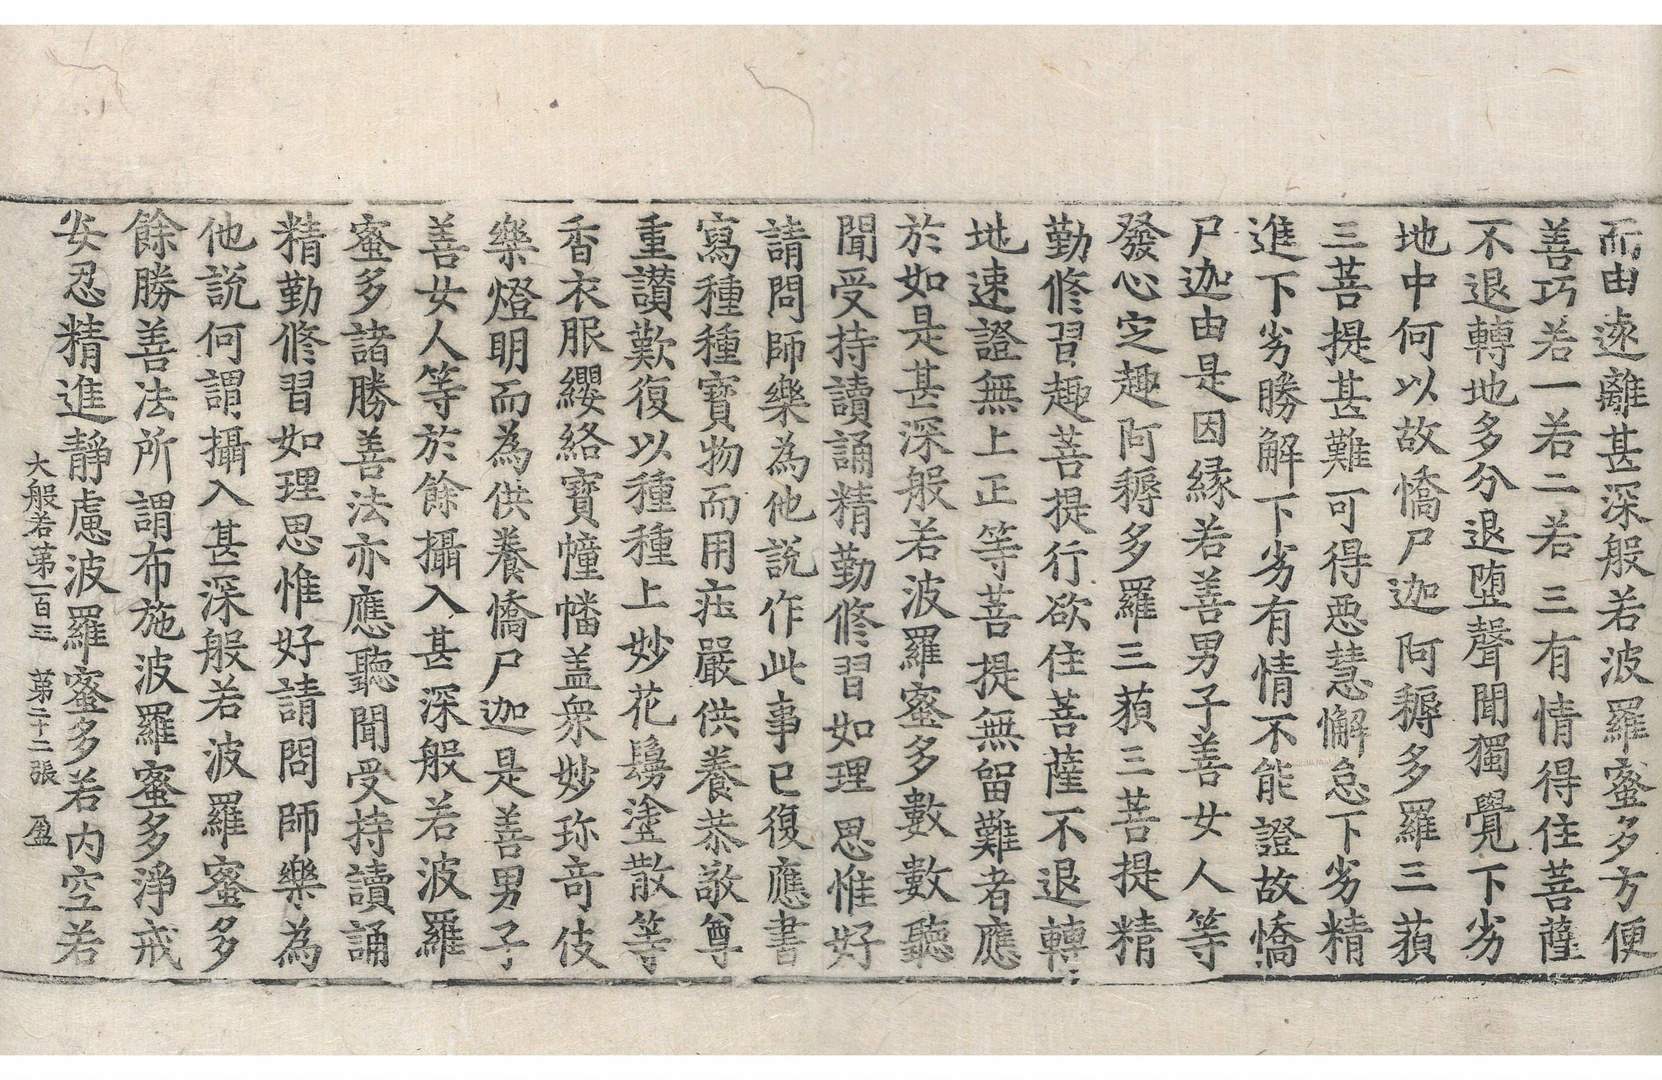 而由遠離甚深般若波羅蜜多方便
善巧若一若二若三有情得住菩薩
不退轉地多分退墮聲聞獨覺下劣
地中何以故憍尸迦阿耨多羅三藐
三菩提甚難可得惡慧懈怠下劣精
進下劣勝解下劣有情不能證故憍
尸迦由是因緣若善男子善女人等
發心定趣阿耨多羅三藐三菩提精
勤修習趣菩提行欲住菩薩不退轉
地速證無上正等菩提無留難者應
於如是甚深般若波羅蜜多數數聽
聞受持讀誦精勤修習如理思惟好
請問師樂為他說作此事已復應書
寫種種寶物而用莊嚴供養恭敬尊
重讚歎復以種種上妙花鬘塗散等
香衣服纓絡寶幢幡盖衆妙珎奇伎
樂燈明而為供養憍尸迦是善男子
善女人等於餘攝入甚深般若波羅
蜜多諸勝善法亦應聽聞受持讀誦
精勤修習如理思惟好請問師樂為
他說何謂攝入甚深般若波羅蜜多
餘勝善法所謂布施波羅蜜多淨戒
安忍精進靜慮波羅蜜多若內空若
大般若第一百三　第二十二張　盈